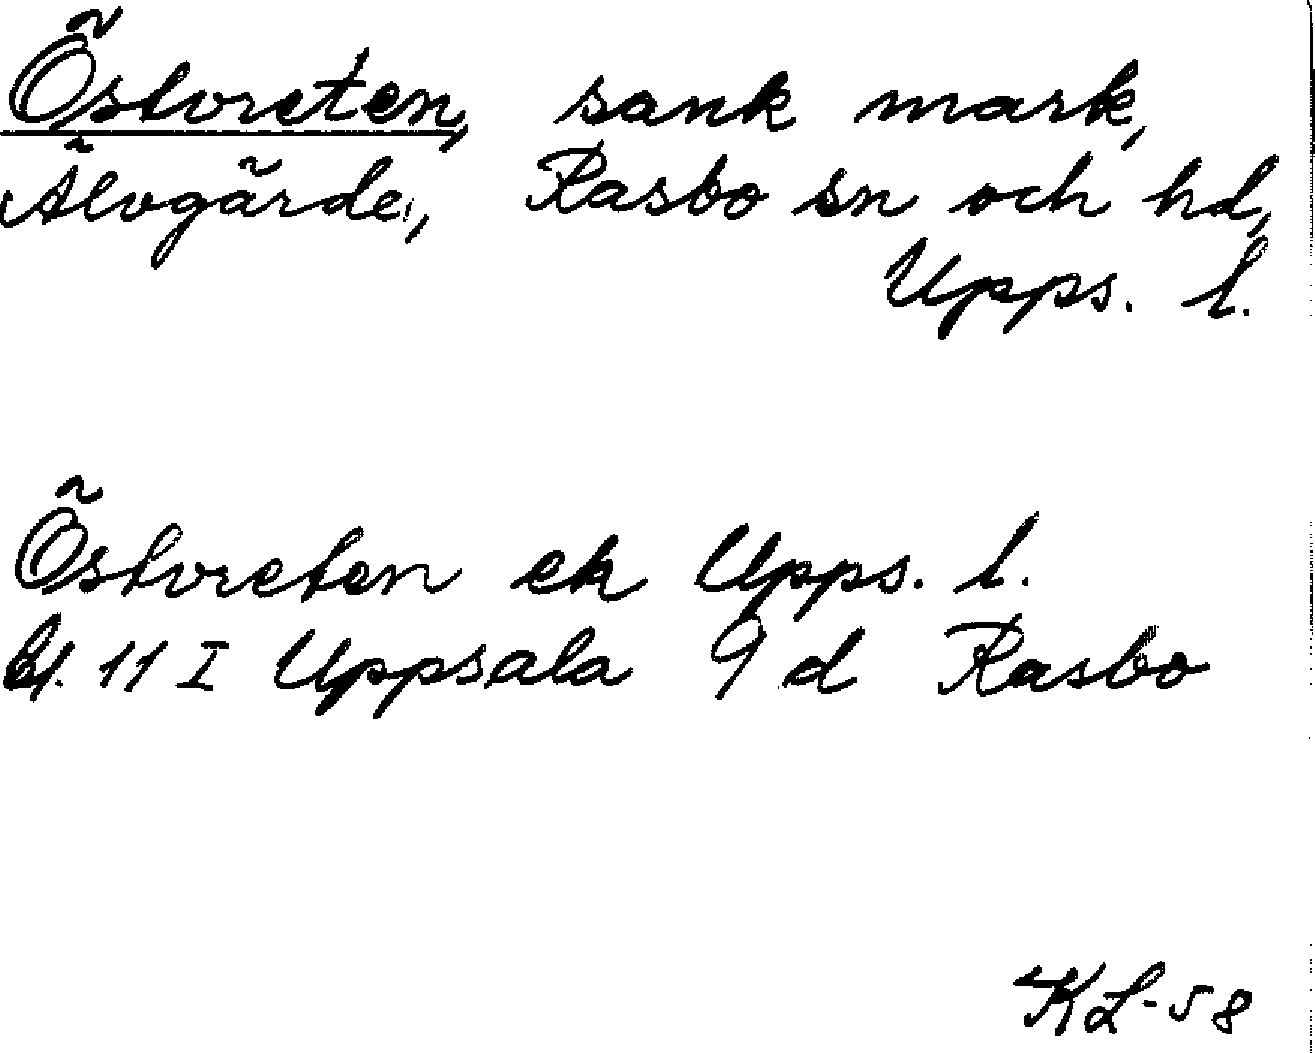 Östvreten, sank mark,
Älvgärde, Rasbo sn och hd,
Upps. l.
Östvreten ek Upps. l.
bl. 11 I Uppsala 9 d Rasbo
KL-58